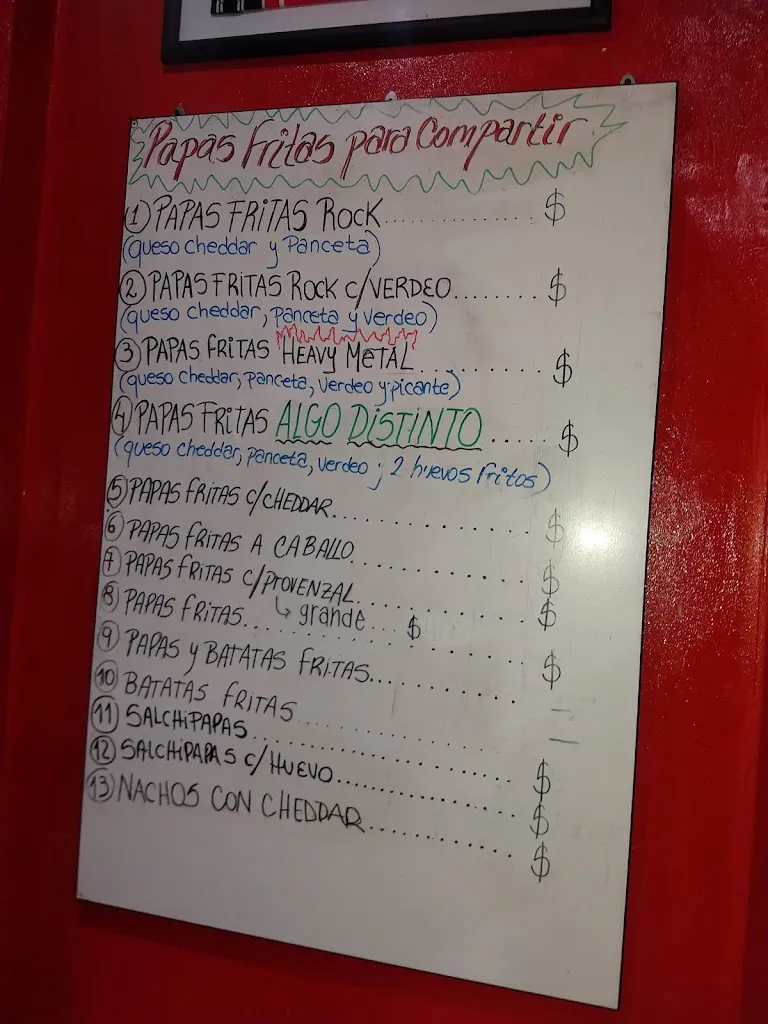 Papas Fritas para Compartir
1 PAPAS FRITAS Rock.................. $
(queso cheddar y Panceta)
2 PAPAS FRITAS Rock c/VERDEO........ $
(queso cheddar, panceta y verdeo)
3 PAPAS FRITAS HEAVY METAL.............. $
(queso cheddar, panceta, verdeo y picante)
4 PAPAS FRITAS ALGO DISTINTO..... $
(queso cheddar, panceta, verdeo ; 2 huevos fritos)
5 PAPAS FRITAS c/CHEDDAR.................. $
6 PAPAS FRITAS A CABALLO.................. $
7 PAPAS FRITAS c/PROVENZAL.................. $
↳ grande... $
8 PAPAS FRITAS.................. $
9 PAPAS y BATATAS FRITAS.............. –
10 BATATAS FRITAS.................. –
11 SALCHIPAPAS.................. $
12 SALCHIPAPAS c/HUEVO.................. $
13 NACHOS CON CHEDDAR.............. $